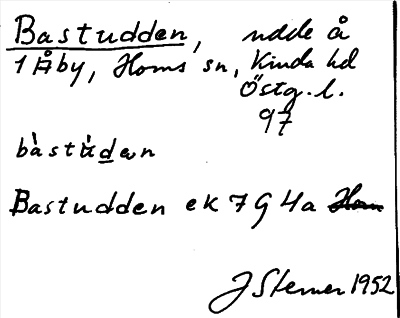 Bastudden, udde å
1 Åby, Horns sn, Kinda hd
Östg. l.
97
bàstùdən
Bastudden ek 7 G 4a
J Sterner 1952